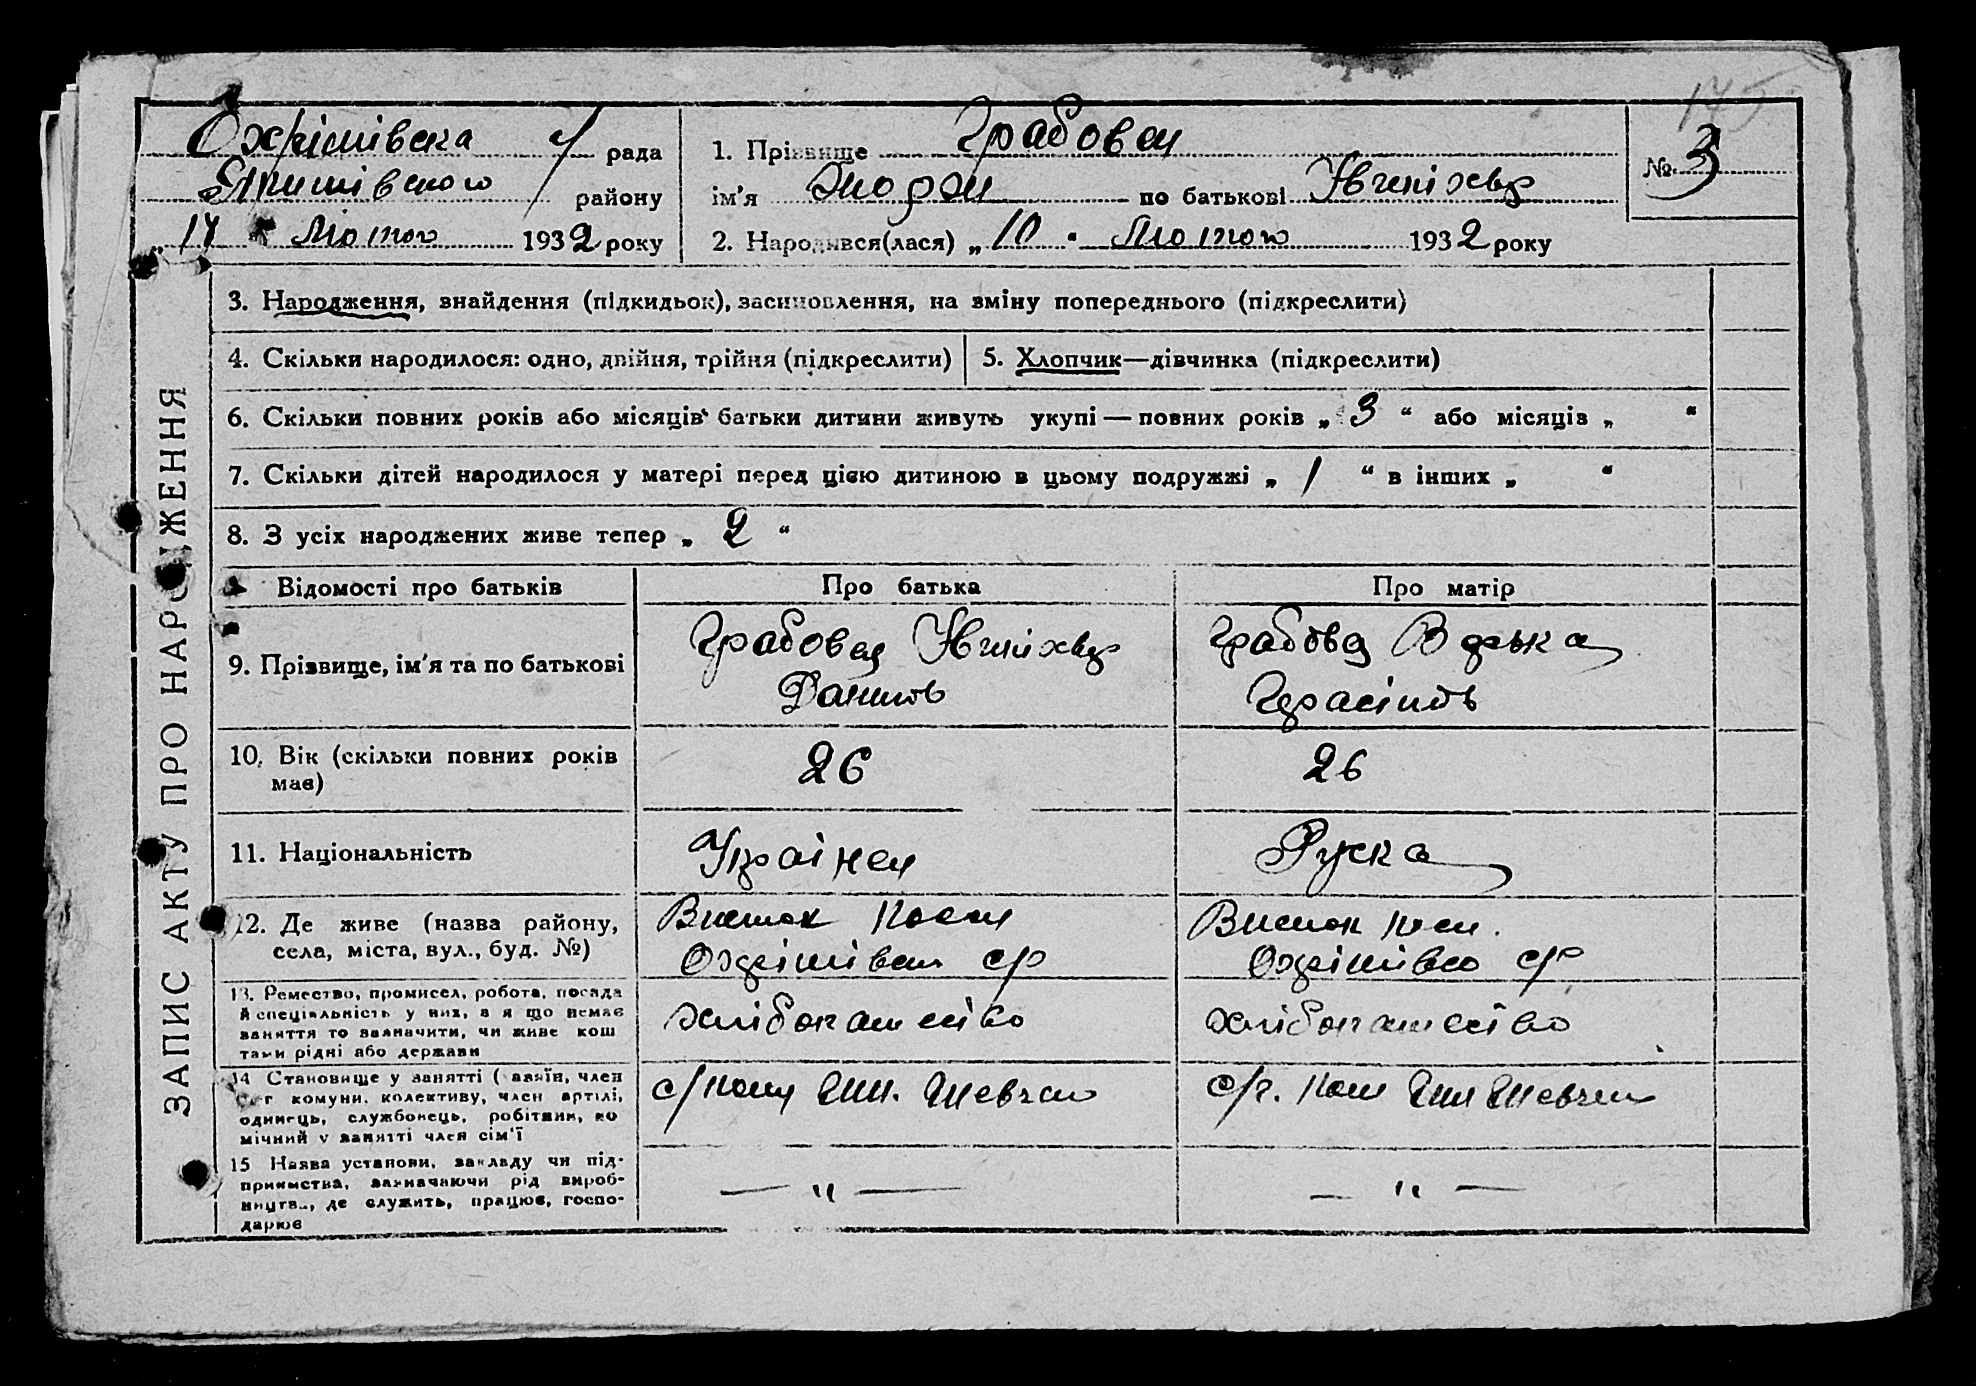 175
Охрімівска с/ рада
Якимівського району
„ 17 “ Лютого 1932 року
1. Прізвище Грабовец
ім’я по батькові
№ 3
2. Народився(лася) „ 10 “ Лютого 1932 року
ЗАПИС АКТУ ПРО НАРОДЖЕННЯ
3. Народження, знайдення (підкидьок), засиновлення, на зміну попереднього (підкреслити)
4. Скільки народилося: одно, двійня, трійня (підкреслити)
5. Хлопчик—дівчинка (підкреслити)
6. Скільки повних років або місяців батьки дитини живуть укупі — повних років „ 3 “ або місяців „ “
7. Скільки дітей народилося у матері перед цією дитиною в цьому подружжі „ 1 “ в інших „ “
8. З усіх народжених живе тепер „ 2 “
Відомості про батьків
Про батька
Про матір
9. Прізвище, ім’я та по батькові
Грабовец
Данилов
Грабовец
Герасімов
10. Вік (скільки повних років
має)
26
26
11. Національність
Українец
Руска
12. Де живе (назва району,
села, міста, вул., буд. №)
Висілок
Охрімівсько с/р
Висілок
Охрімівсько с/р
13. Ремество, промисел, робота, посада
й спеціяльність у них, а я що немає
заняття то зазначити, чи живе кош
тами рідні або держави
хлібопашество
хлібопашество
14 Становище у занятті (хазяїн, член
с.-г комуни, колективу, член артілі,
одинець, службовець, робітник, по
мічний у занятті член сім’ї
с/г Шевченко
с/г. Шевченко
15 Назва установи, закладу чи під-
приємства, зазначаючи рід вироб-
ництва, де служить, працює, госпо-
дарює
— „ —
— „ —